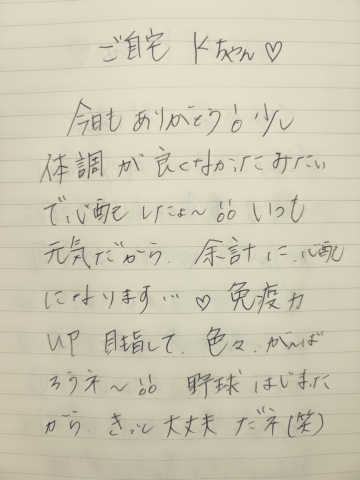 ご自宅 Kちゃん♡
今日も ありがとう!! 少し
体調が良くなかったみたい
で、心配したよ〜!! いつも
元気だから、余計に、心配
になります…♡ 免疫力
UP 目指して、色々、がんば
ろうネ〜!! 野球はじまった
から、きっと大丈夫だネ(笑)